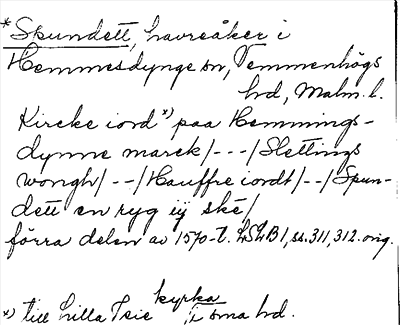 *Spundett, havreåker i
Hemmesdynge sn, Vemmenhögs
hd, Malm. l.
Kircke iord *) paa Hemmings-
dynne marck/---/Slettings
wongh/--/Hauffre iordt/--/Spun-
dett en ryg iÿ ske/
förra delen av 1570-t. LSLB1, ss. 311, 312. orig.
*) till Lilla Isie kyrka i sma hd.